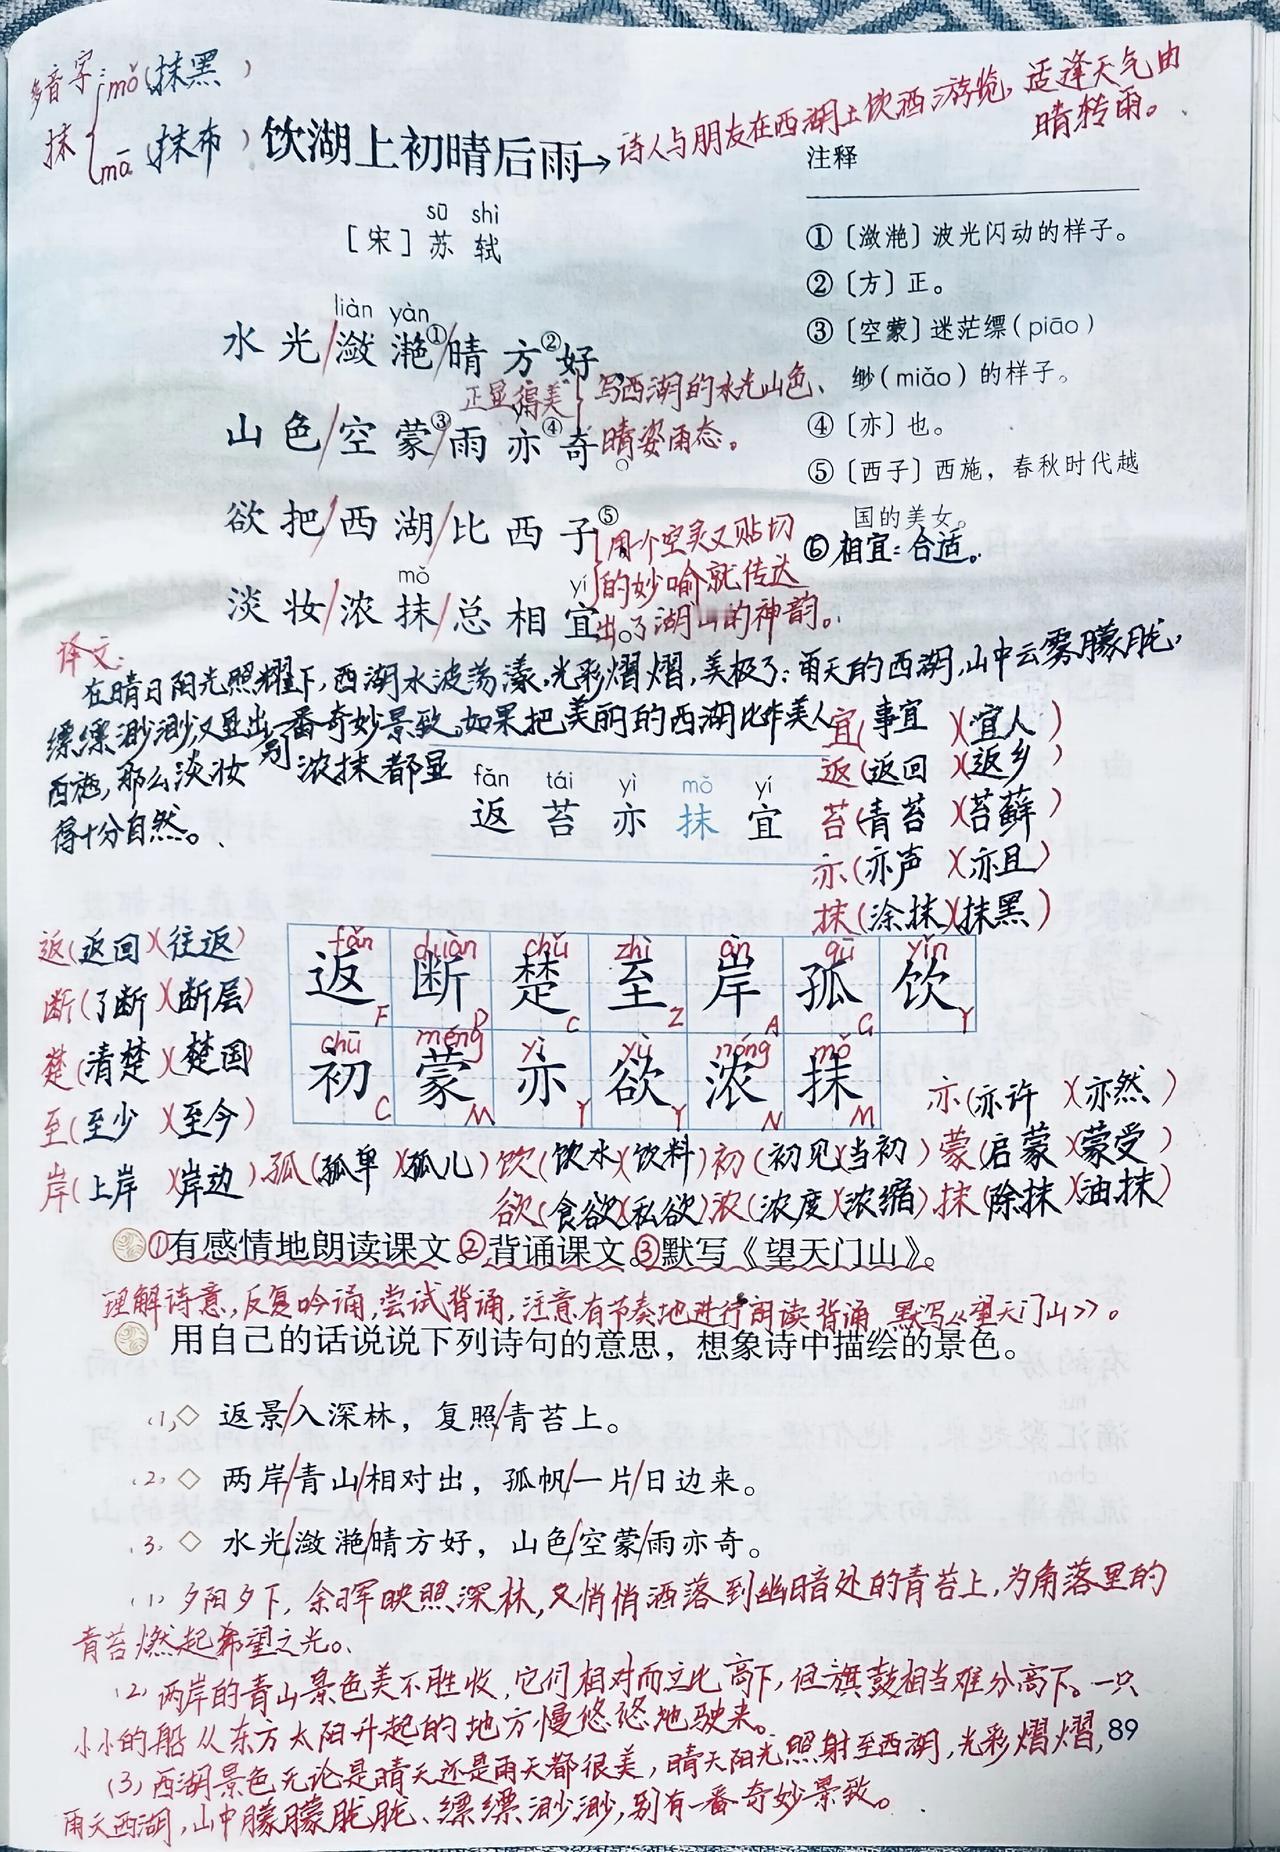 多音字:mǒ(抹黑)
抹 mā(抹布)
饮湖上初晴后雨→诗人与朋友在西湖上饮酒游览,适逢天气由
晴转雨。
sū shì
[宋]苏轼
liàn yàn
水光/潋滟①/晴方②好
正显得美
山色/空蒙③/雨亦④奇。
写西湖的水光山色、
晴姿雨态。
欲把/西湖/比西子⑤
mǒ yí
淡妆/浓抹/总相宜。
用个空灵又贴切
的妙喻就传达
出了湖山的神韵。
注释
①〔潋滟〕波光闪动的样子。
②〔方〕正。
③〔空蒙〕迷茫缥(piāo)
缈(miǎo)的样子。
④〔亦〕也。
⑤〔西子〕西施,春秋时代越
国的美女。
⑥相宜:合适。
译文:
在晴日阳光照耀下,西湖水波荡漾,光彩熠熠,美极了;雨天的西湖,山中云雾朦胧,
缥缥渺渺,又显出一番奇妙景致。如果把美丽的西湖比作美人
西施,那么淡妆 浓抹都显
得十分自然。
宜(事宜)(宜人)
返(返回)(返乡)
苔(青苔)(苔藓)
亦(亦声)(亦且)
抹(涂抹)(抹黑)
fǎn tái yì mǒ yí
返 苔 亦 抹 宜
返(返回)(往返)
断(了断)(断层)
楚(清楚)(楚国)
至(至少)(至今)
岸(上岸)(岸边)
fǎn duàn chǔ zhì àn gū yǐn
返 断 楚 至 岸 孤 饮
F D C Z A G Y
chū méng yì yù nóng mǒ
初 蒙 亦 欲 浓 抹
C M Y Y N M
亦(亦许)(亦然)
孤(孤单)(孤儿)饮(饮水)(饮料)初(初见)(当初)蒙(启蒙)(蒙受)
欲(食欲)(私欲)浓(浓度)(浓缩)抹(除抹)(油抹)
①有感情地朗读课文。②背诵课文。③默写《望天门山》。
理解诗意,反复吟诵,尝试背诵,注意有节奏地进行朗读背诵,默写《望天门山》。
用自己的话说说下列诗句的意思,想象诗中描绘的景色。
(1)◇ 返景/入深林,复照/青苔上。
(2)◇ 两岸/青山/相对出,孤帆/一片/日边来。
(3)◇ 水光/潋滟/晴方好,山色/空蒙/雨亦奇。
(1)夕阳夕下,余晖映照深林,又悄悄洒落到幽暗处的青苔上,为角落里的
青苔燃起希望之光。
(2)两岸的青山景色美不胜收,它们相对而立比高下,但旗鼓相当难分高下。一只
小小的船从东方太阳升起的地方慢悠悠地驶来。
(3)西湖景色无论是晴天还是雨天都很美,晴天阳光照射至西湖,光彩熠熠,
雨天西湖,山中朦朦胧胧、缥缥渺渺,别有一番奇妙景致。
89